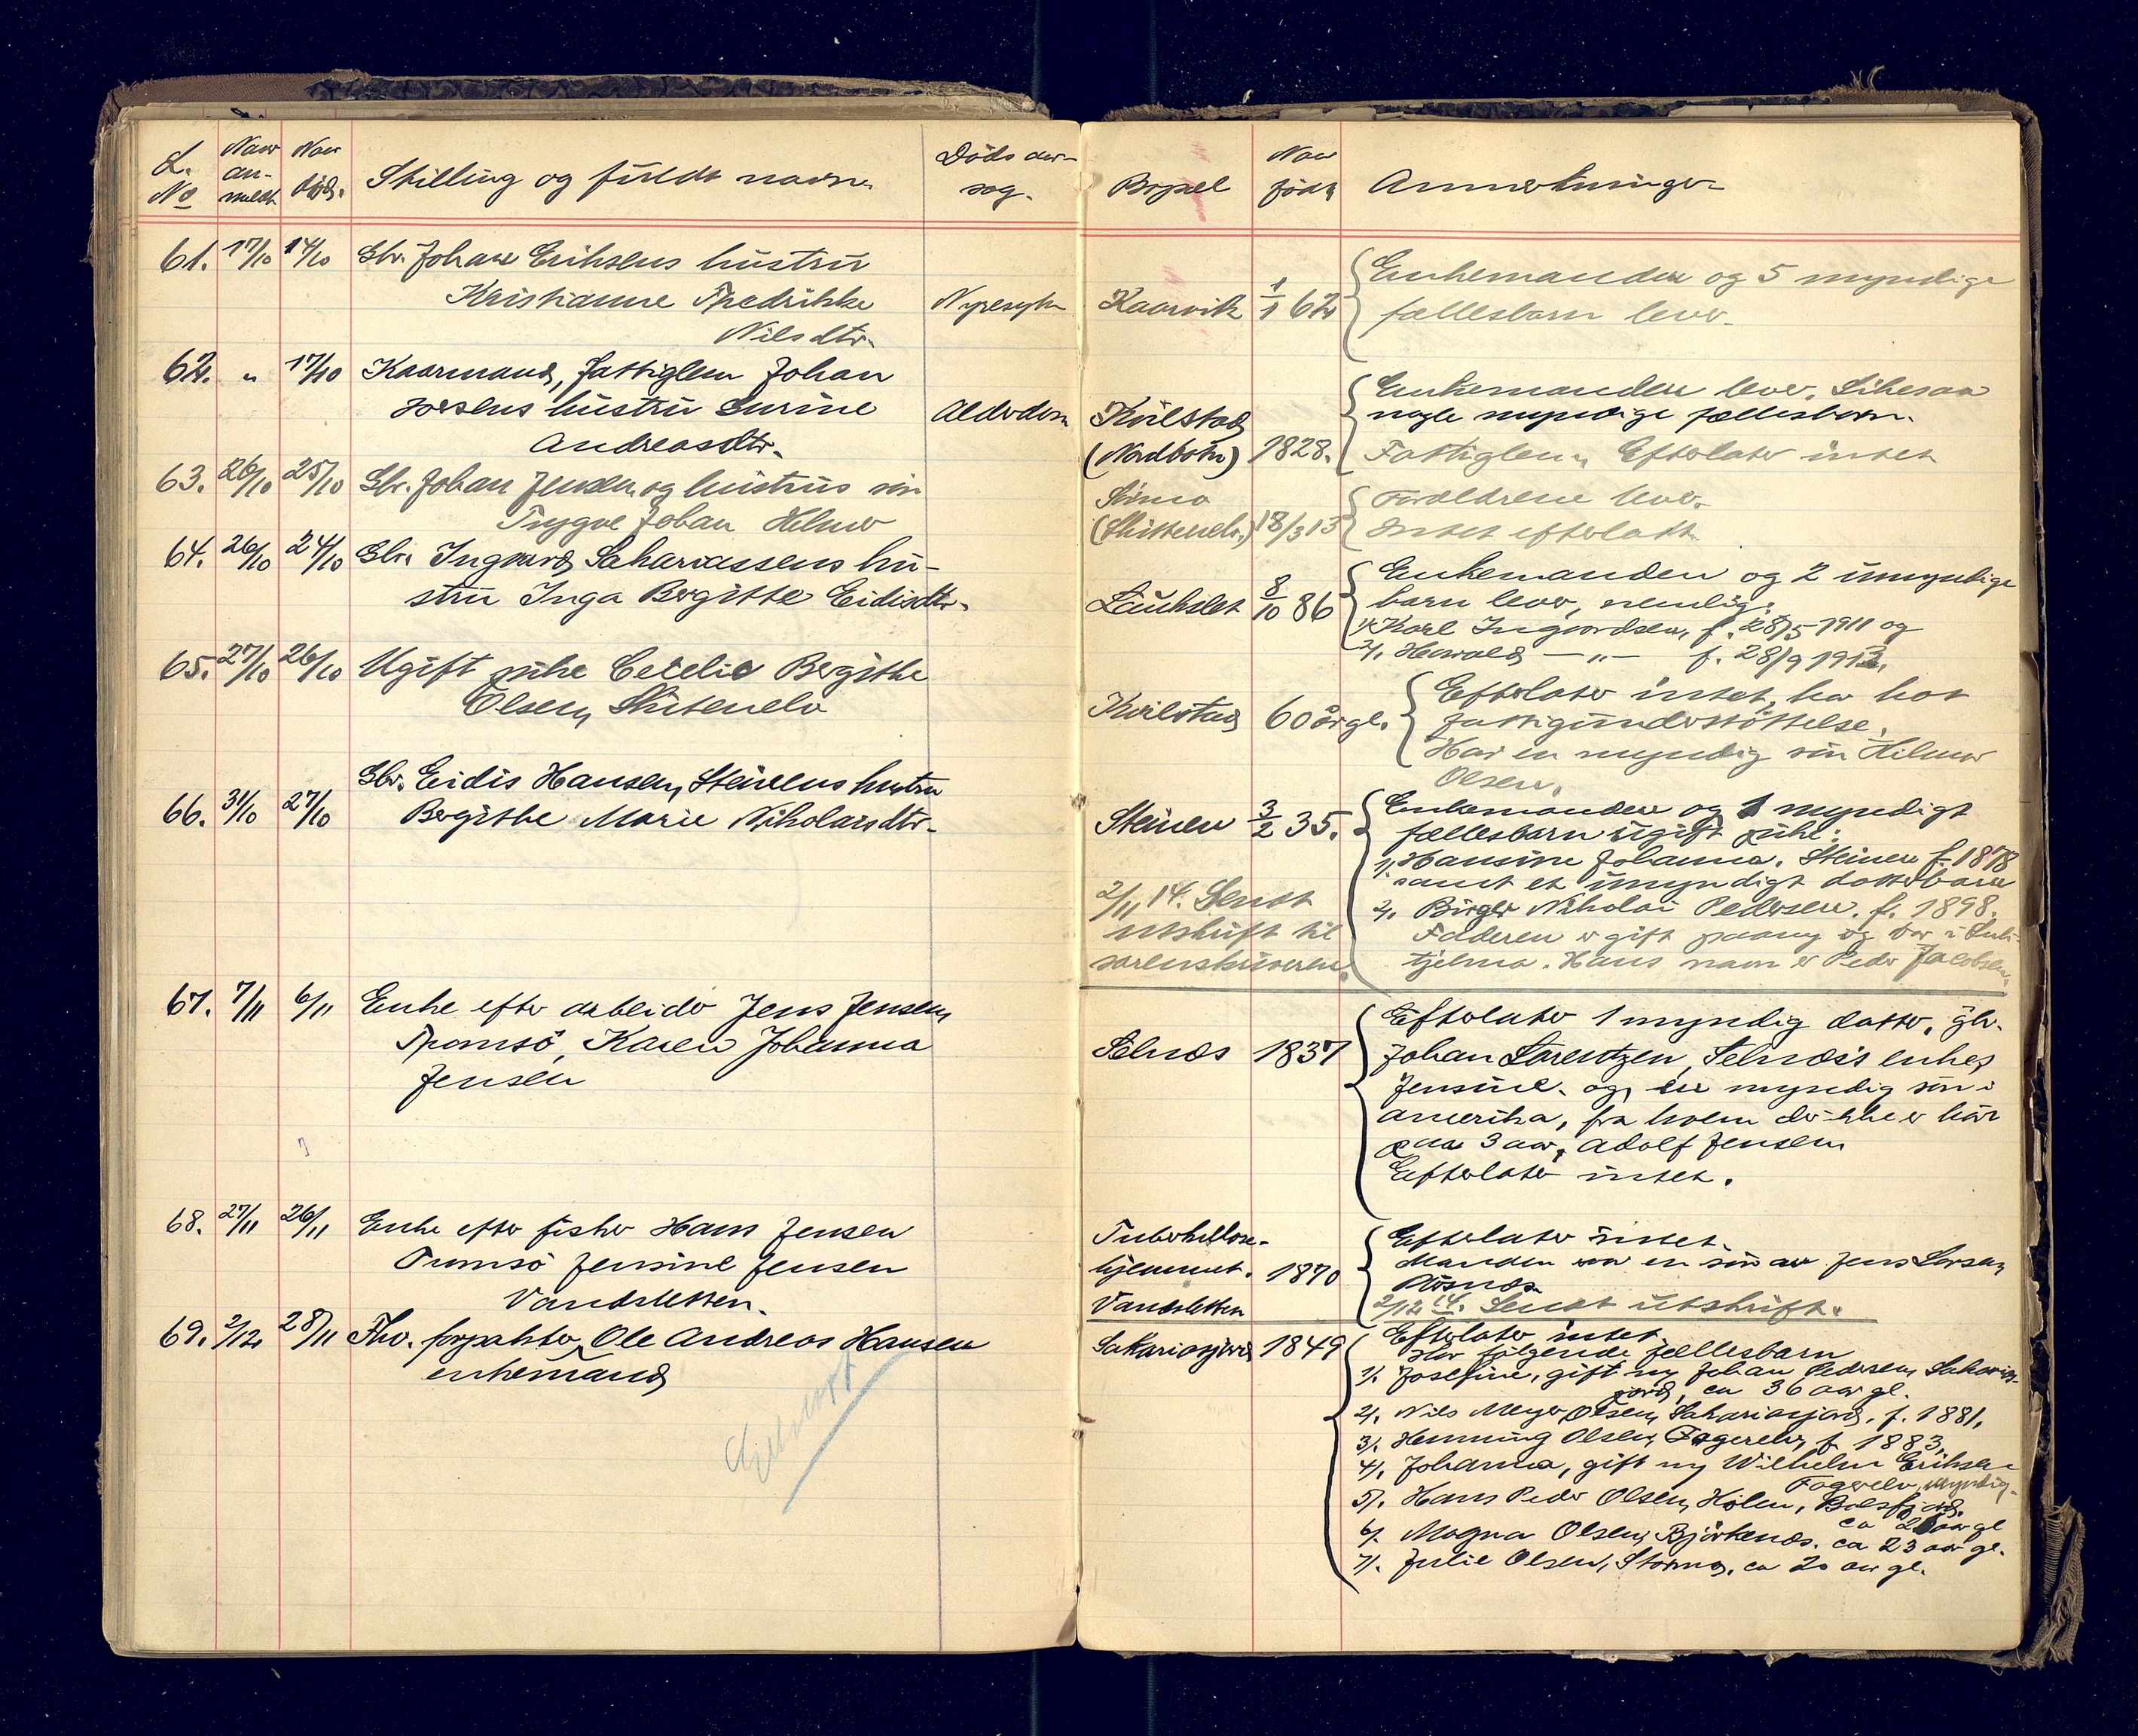 L. No
Naar an-meldt
Naar död.
Stilling og fuldt navn.
Døds aar-sag.
Bopæl
Naar född
Anmerkninger
61. 17/10 14/10 Gbr. Johan Eriksens hustru
Kristianne Fredrikke
Nilsdtr.
Nyresyke
Kaarvik 1/1 62
Enkemanden og 5 myndige
fællesbarn lever.
62. " 17/10 Kaarmand, fattiglem Johan
hustru Surine
Andreasdtr.
Alderdom
Kvilstad
(Nordbotn) 1828.
Enkemanden lever. Likesaa
nogle myndige fællesbarn.
Fattiglem. Efterlater intet
63. 26/10 25/10 Gbr. Johan Jensen og hustrus søn
Trygve Johan Hilmer
(Skittenelv.) 18/3 13
Forældrene lever.
Intet efterlatt
64. 26/10 24/10 Gbr. Ingvard Sakariassens hu-
stru Inga Bergitte Eidisdtr.
Laukslet 8/10 86
Enkemanden og 2 umyndige
barn lever, nemlig:
1/. Karl Ingvardsen, f. 28/5 1911 og
2/. Harald — " — f. 28/9 1913.
65. 27/10 26/10 Ugift pike Cecelie Bergithe
Olsen, Skitenelv
Kvilstad 60 år gl.
Efterlater intet, har hat
fattigunderstöttelse.
Har en myndig sön Hilmar
Olsen.
66. 31/10 27/10 Gbr. Eidis Hansen, Steinens hustru
Bergithe Marie Nikolaisdtr.
Steinen 3/2 35.
Enkemanden og 1 myndigt
fællesbarn ugift pike:
1/. Hansine Johanna. Steinen f. 1878
samt et umyndigt datterbarn
2/. Birger Nikolai Pedersen. f. 1898.
Faderen er gift paany og bor i Suli-
tjelma. Hans navn er Peder Jacobsen.
2/11 14. Sendt
utskrift til
sorenskriveren.
67. 7/11 6/11 Enke efter arbeider Jens Jensen,
Tromsö, Karen Johanna
Jensen
Selnæs 1837
Efterlater 1 myndig datter, gbr.
Johan Lorentzen, Selnæs's enke,
Jensine. og en myndig sön i
Amerika, fra hvem der ikke er hört
paa 3 aar, Adolf Jensen.
Efterlater intet.
68. 27/11 26/11 Enke efter fisker Hans Jensen
Tromsö Jensine Jensen
Vandsletten.
Tuberkulose-
hjemmet.
Vandsletten
1870
Efterlater intet.
Manden var en sön av Jens Larsen,
2/12 14. Sendt utskrift.
69. 2/12 28/11 Fhv. forpakter, Ole Andreas Hansen
enkemand
Sakariasjord 1849
Efterlater intet
Har følgende fællesbarn
1/. Josefine, gift m/ Johan Pedersen, Sakarias-
jord, ca 36 aar gl.
2/. Nils Meyer Olsen, Sakariasjord, f. 1881.
3/. Henning Olsen, Fagerelv, f. 1883,
4/. Johanna, gift m/ Wilhelm Eriksen
Fagerelv, myndig.
5/. Hans Peder Olsen, Holen, Balsfjord,
ca 28 aar gl
6/. Magna Olsen, Björkenæs. ca 23 aar gl.
7/. Julie Olsen, ca 20 aar gl.